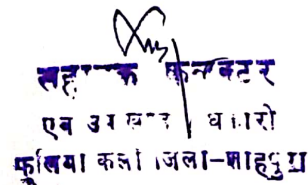 सहायक कलक्टर
एवं उपखण्ड अधिकारी
फूलिया कलां जिला-शाहपुरा